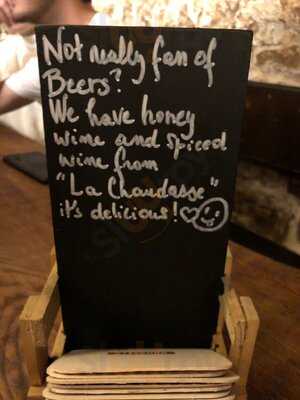 Not really fan of
Beers?
We have honey
wine and spiced
wine from
"La Chaudasse"
it's delicious!